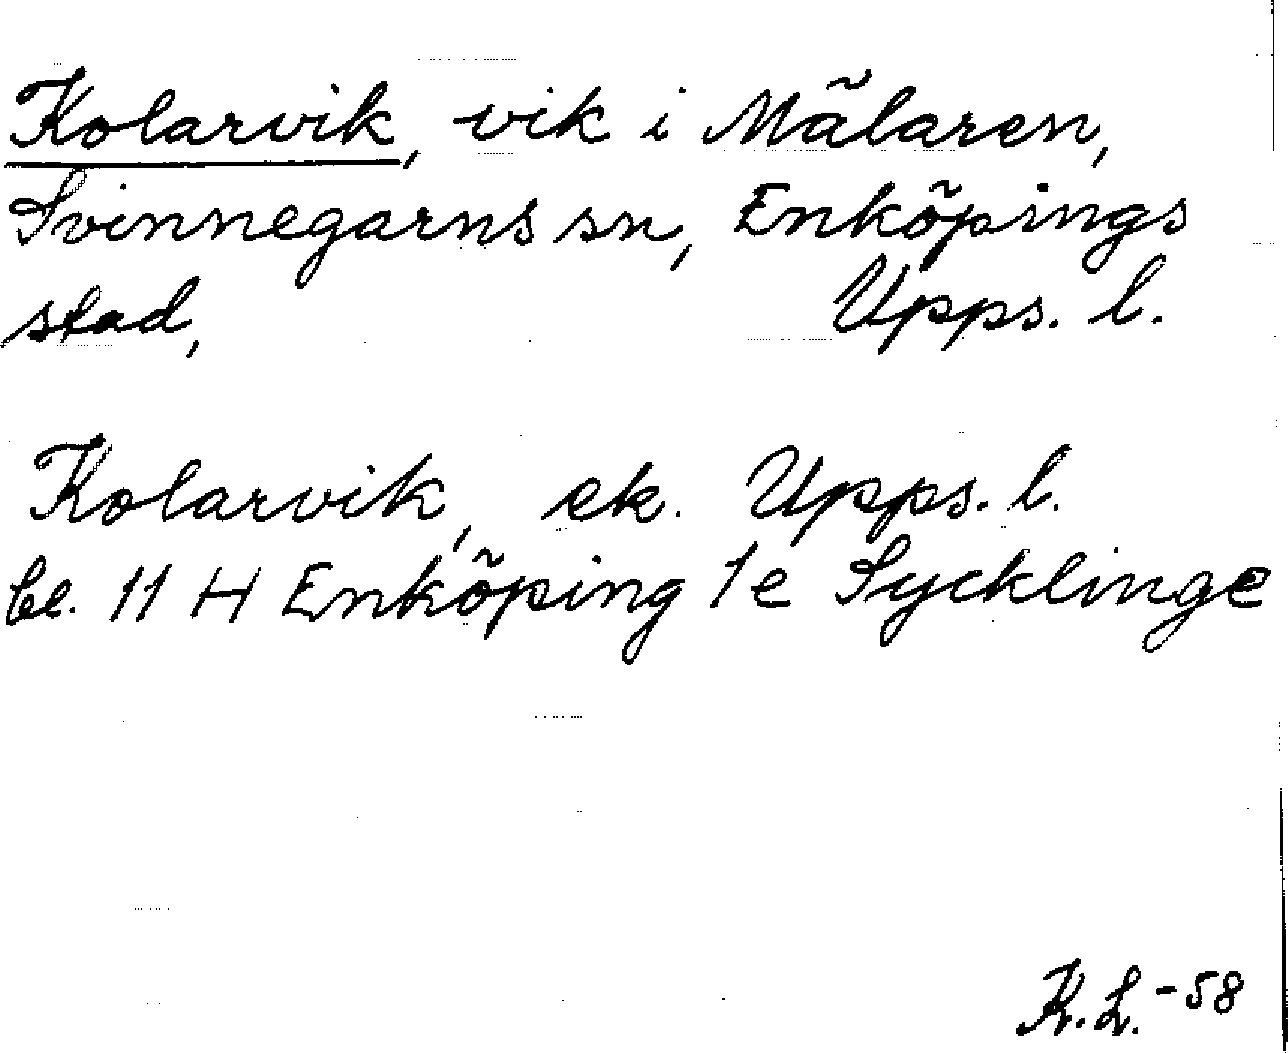 Kolarvik, vik i Mälaren,
Svinnegarns sn, Enköpings
stad, Upps. l.
Kolarvik, ek. Upps. l.
bl. 11 H Enköping 1e Sycklinge
K. L. -58